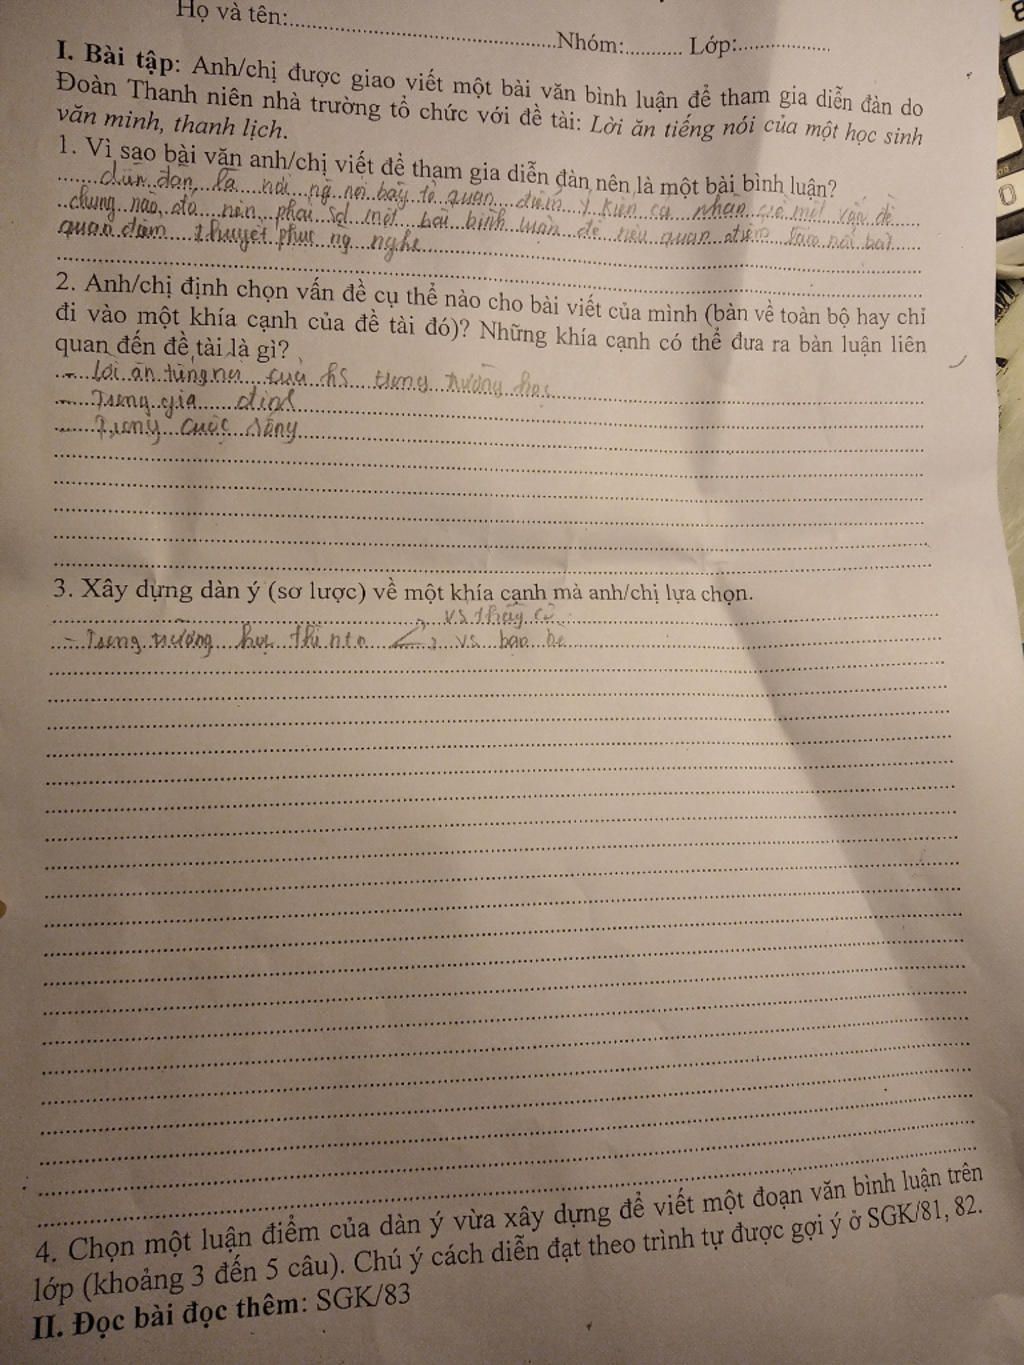 Họ và tên:
Nhóm: Lớp:
I. Bài tập: Anh/chị được giao viết một bài văn bình luận để tham gia diễn đàn do
Đoàn Thanh niên nhà trường tổ chức với đề tài: Lời ăn tiếng nói của một học sinh
văn minh, thanh lịch.
1. Vì sao bài văn anh/chị viết để tham gia diễn đàn nên là một bài bình luận?
diễn đàn là nơi ng nói bày tỏ quan điểm ý kiến cá nhân về một vấn đề
chung nào đó nên phải sd một bài bình luận để nêu quan điểm làm nổi bật
quan điểm thuyết phục ng nghe
2. Anh/chị định chọn vấn đề cụ thể nào cho bài viết của mình (bàn về toàn bộ hay chỉ
đi vào một khía cạnh của đề tài đó)? Những khía cạnh có thể đưa ra bàn luận liên
quan đến đề tài là gì?
- Lời ăn tiếng nói của hs trong trường học
- Trong gia đình
- Trong cuộc sống
3. Xây dựng dàn ý (sơ lược) về một khía cạnh mà anh/chị lựa chọn.
vs thầy cô
- Trong trường học thì nto vs bạn bè
4. Chọn một luận điểm của dàn ý vừa xây dựng để viết một đoạn văn bình luận trên
lớp (khoảng 3 đến 5 câu). Chú ý cách diễn đạt theo trình tự được gợi ý ở SGK/81, 82.
II. Đọc bài đọc thêm: SGK/83